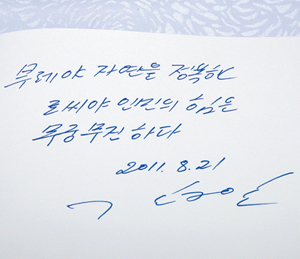 부레야 자연을 정복한
로씨야 인민의 힘은
무궁무진 하다
2011. 8. 21